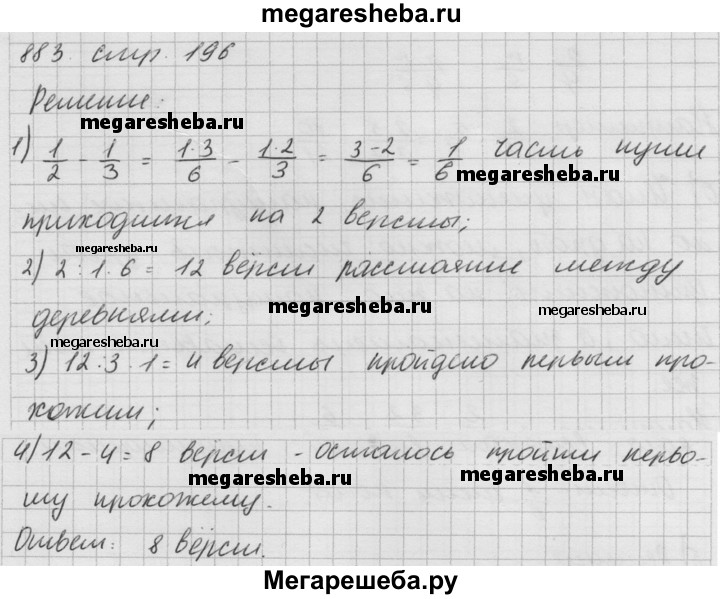 megaresheba.ru
883 стр. 196
Решение:
megaresheba.ru
1) 1/2 - 1/3 = 1·3/6 - 1·2/3 = 3-2/6 = 1/6 часть пути
megaresheba.ru
приходится на 2 версты;
megaresheba.ru
2) 2 : 1 · 6 = 12 вёрст расстояние между
megaresheba.ru megaresheba.ru
деревнями;
megaresheba.ru
3) 12 : 3 · 1 = 4 версты пройдено первым про-
хожим;
4) 12 - 4 = 8 вёрст - осталось пройти перво-
megaresheba.ru megaresheba.ru
му прохожему.
Ответ: 8 вёрст.
Мегарешеба.ру